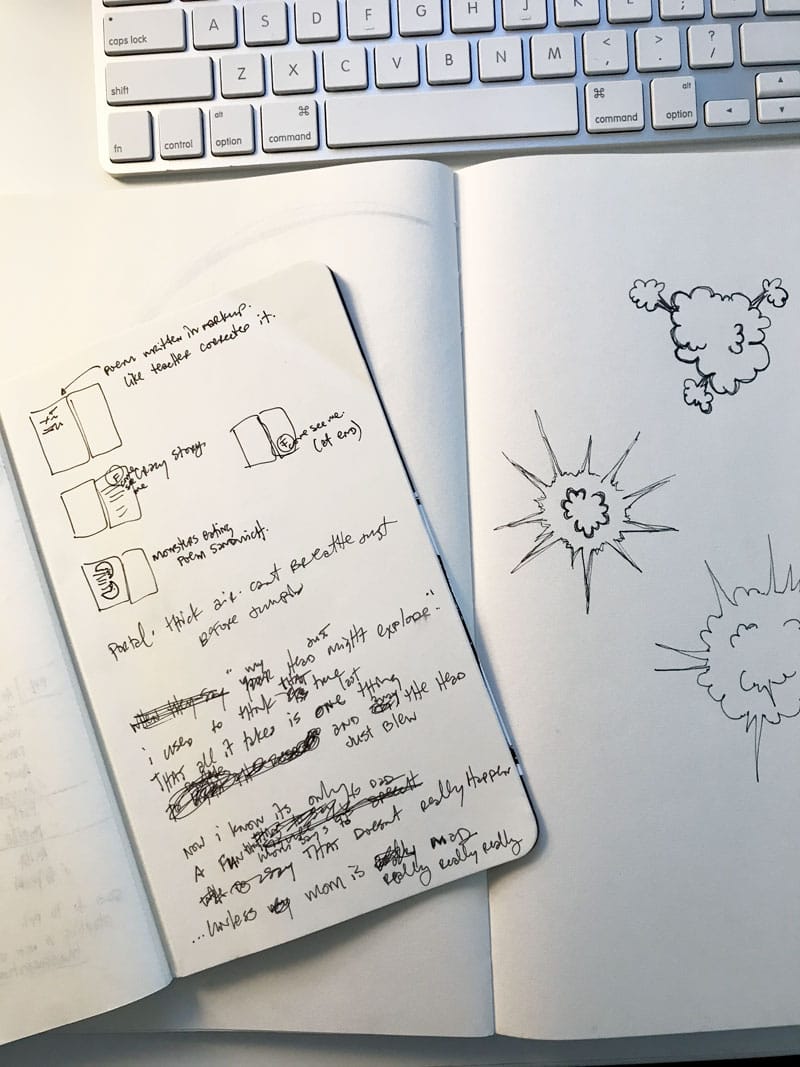 caps lock
A S D F G H J K L ;
shift
Z X C V B N M < , > . ? /
fn
control
alt option
⌘ command
⌘ command
alt option
Poem written in markup.
like teacher corrected it.
F
crazy story.
me
F see me.
(at end)
monsters eating
poem sandwich.
Portal: thick air. cant Breathe Just
Before Jumping
"my Just
Head might explode."
i used to think THAT true
THAT all it takes is one last thing
and the Head
Just Blew
Now i know its only
A Fun
say THAT Doesnt really Happen
...unless my mom is map
really really really